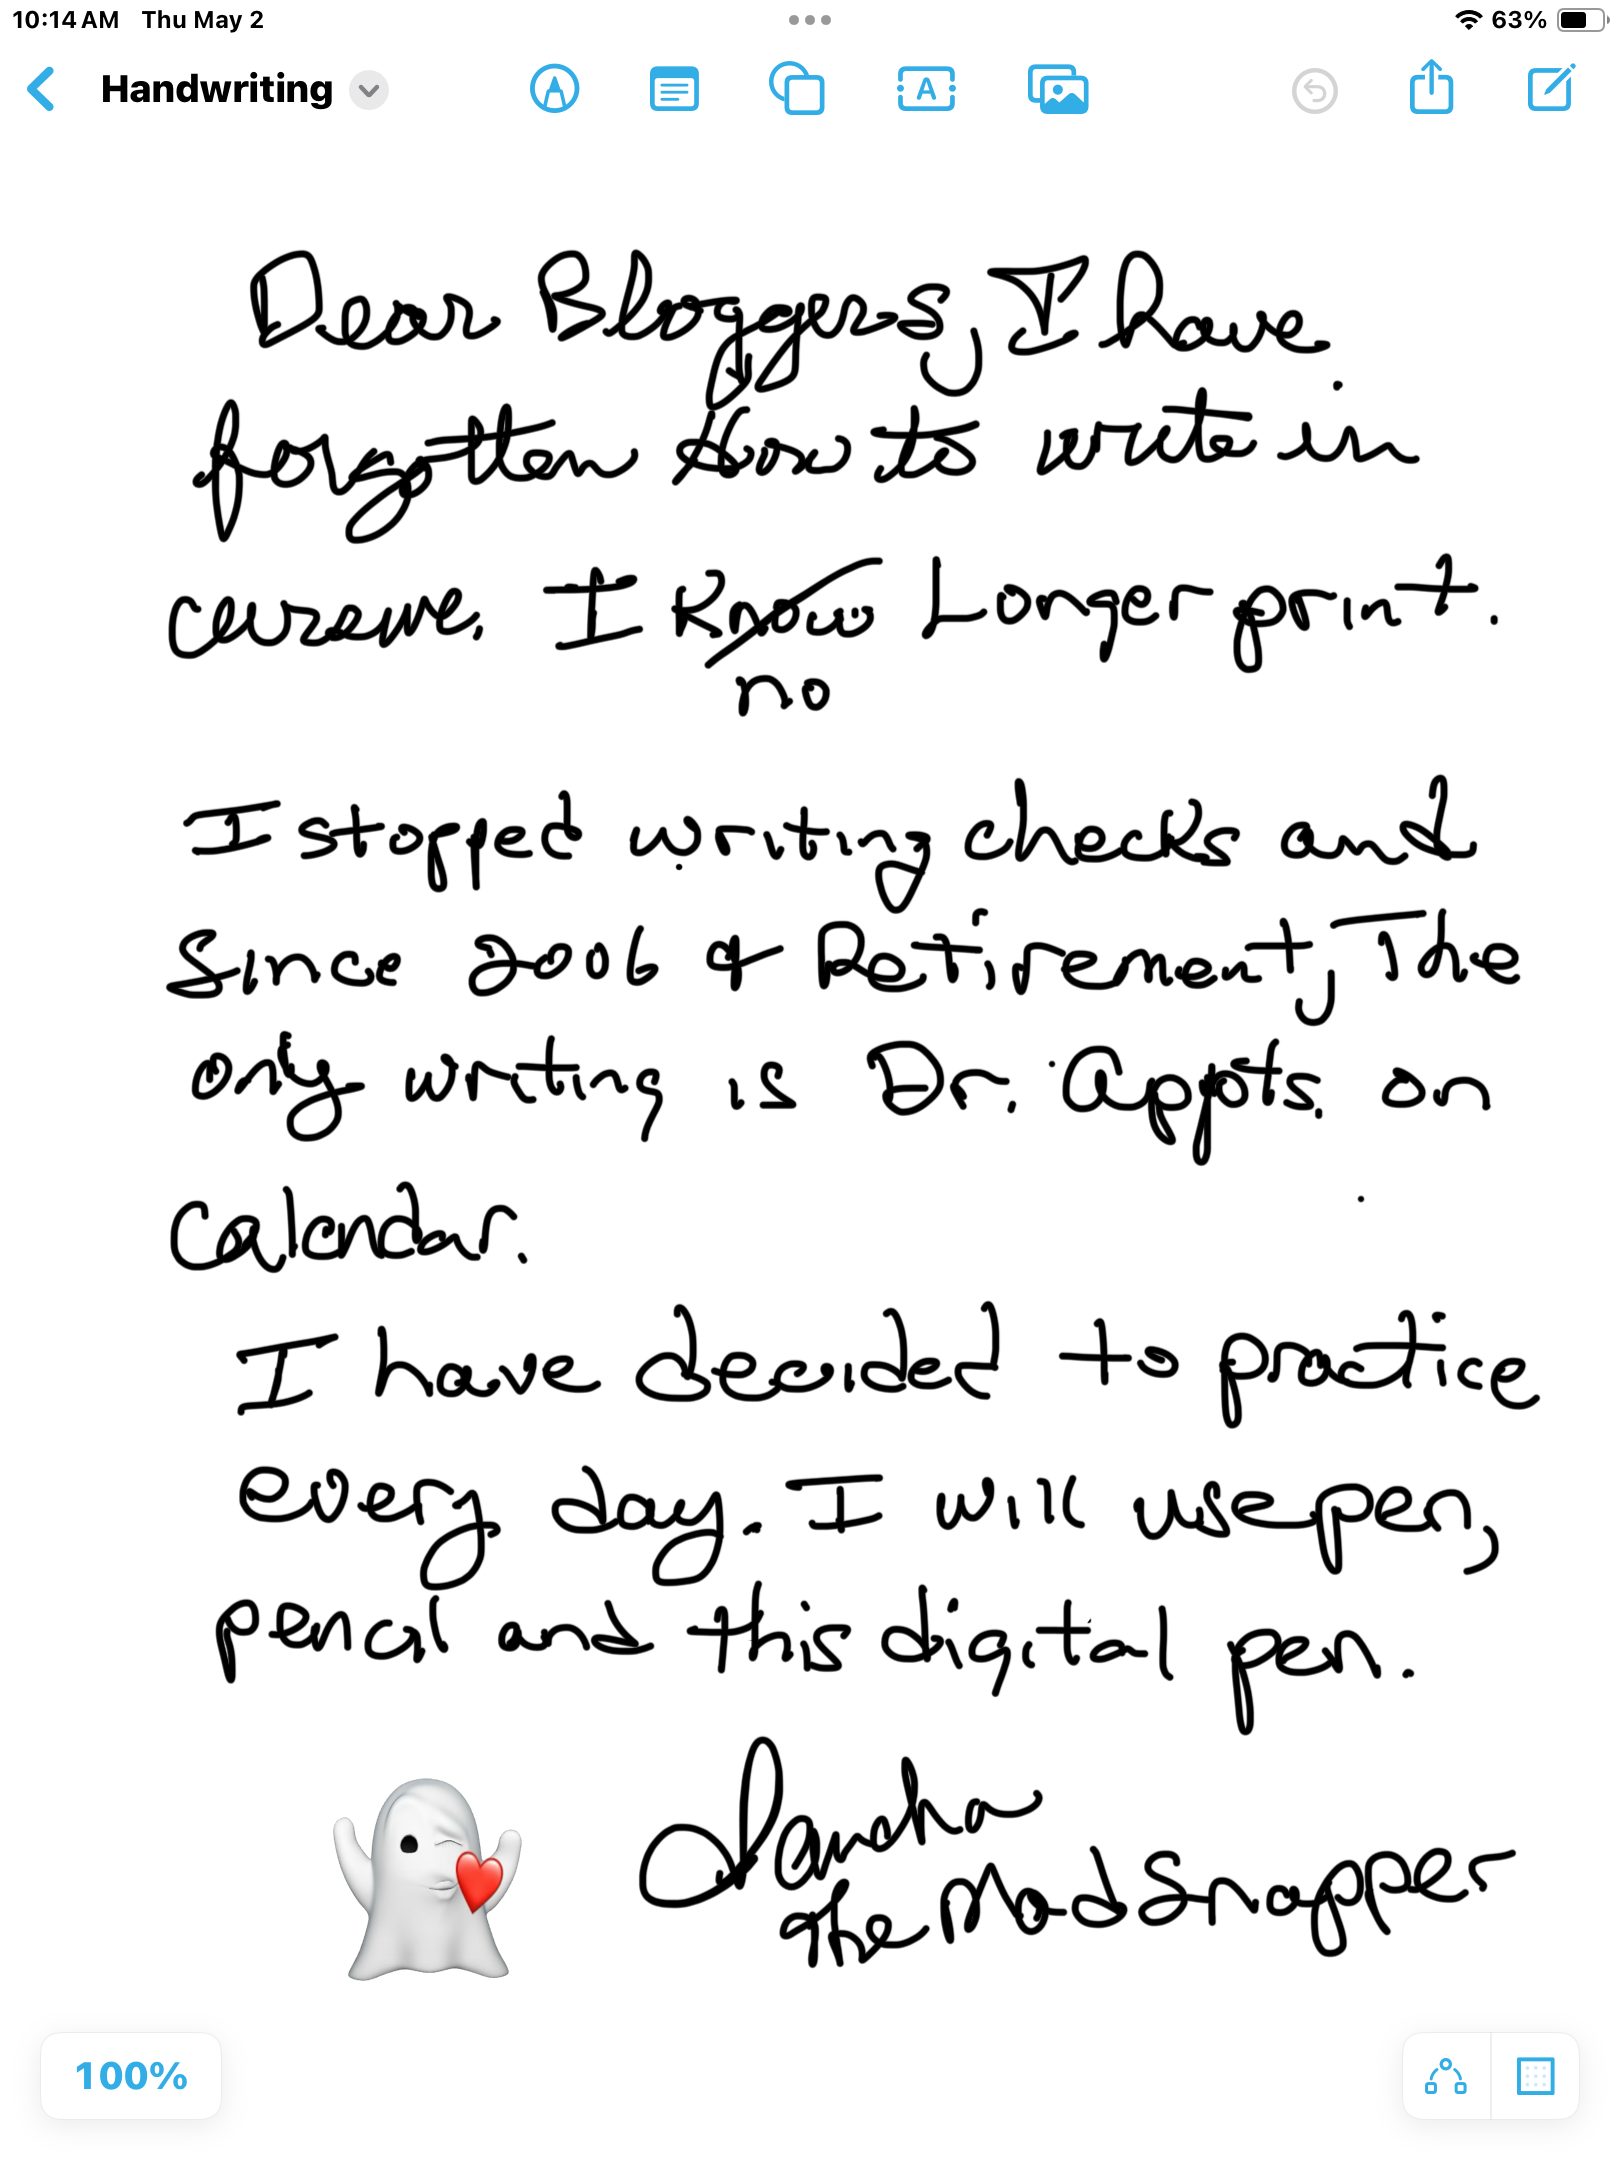 10:14 AM Thu May 2 63%
Handwriting
Dear Bloggers, I have
forgotten How to write in
cursive. I Know Longer print.
no
I stopped writing checks and
Since 2006 & Retirement, The
only writing is Dr. appts. on
Calendar.
I have decided to practice
every day. I will use pen,
pencil and this digital pen.
Sandra
the Mad Snapper
100%